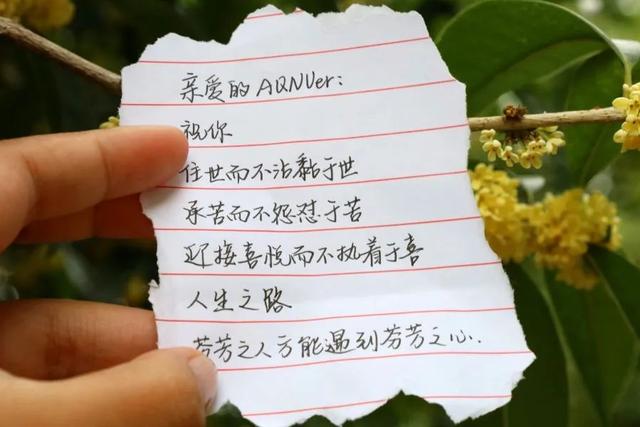 亲爱的AQNUer:
祝你
住世而不沾黏于世
承苦而不怨怼于苦
迎接喜悦而不执着于喜
人生之路
芬芳之人方能遇到芬芳之心.